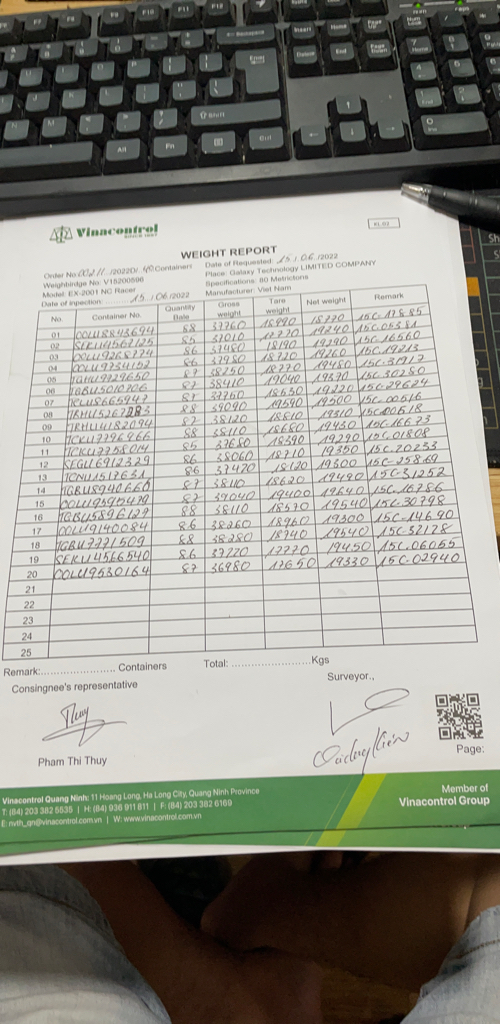 Vinacontrol
SINCE 1957
KL-02
WEIGHT REPORT
Order No: 40 Containers Date of Requested: 15 / 06 /2022
Weighbridge No: V15200596 Place: Galaxy Technology LIMITED COMPANY
Model: EX-2001 NC Racer Specifications: 80 Metrictons
Date of inpection: 15 / 06 /2022 Manufacturer: Viet Nam
No. Container No. Quantity Bale Gross weight Tare weight Net weight Remark
01 OOLU8843694 88 37760 18990 18770 15C-17885
02 SEKU4562125 85 37010 17770 19240 15C-05384
03 OOLU9268774 86 37480 18190 19290 15C-16560
04 OOLU9734152 86 37980 18720 19260 15C-19213
05 TGHU9729650 87 38250 18770 19480
06 TGBU5010206 87 38410 19040 19370 15C-30280
07 TCLU8665947 87 37750 18530 19220 15C-29624
08 TRHU5267283 88 39090 19590 19500 15C-00516
09 TRHU4182094 87 38120 18810 19310 15C-00518
10 TCKU7796966 88 38110 18680 19430 15C-16673
11 TCKU7758014 85 37680 18390 19290 15C-01808
12 SEGU6912329 86 38060 18710 19350 15C-20233
13 TCNU1517631 86 37420 18120 19300 15C-25869
14 TGBU8940660 87 38110 18620 19490 15C-31252
15 OOLU9595479 87 39040 19400 19640 15C-16786
16 TGBU5896127 88 38110 18570 19540 15C-30798
17 OOLU9140084 86 38260 18960 19300 15C-14690
18 TGBU7771509 88 38280 18740 19540 15C-32178
19 SEKU4566540 86 37220 17770 19450 15C-06055
20 OOLU9530164 87 36980 17650 19330 15C-02940
21
22
23
24
25
Remark:........................ Containers Total: ..........................Kgs
Consingnee's representative Surveyor.,
Thuy
Pham Thi Thuy Page:
Vinacontrol Quang Ninh: 11 Hoang Long, Ha Long City, Quang Ninh Province
T: (84) 203 382 5535 | H: (84) 936 911 811 | F: (84) 203 382 6169
E: nvth_qn@vinacontrol.com.vn | W: www.vinacontrol.com.vn
Member of
Vinacontrol Group